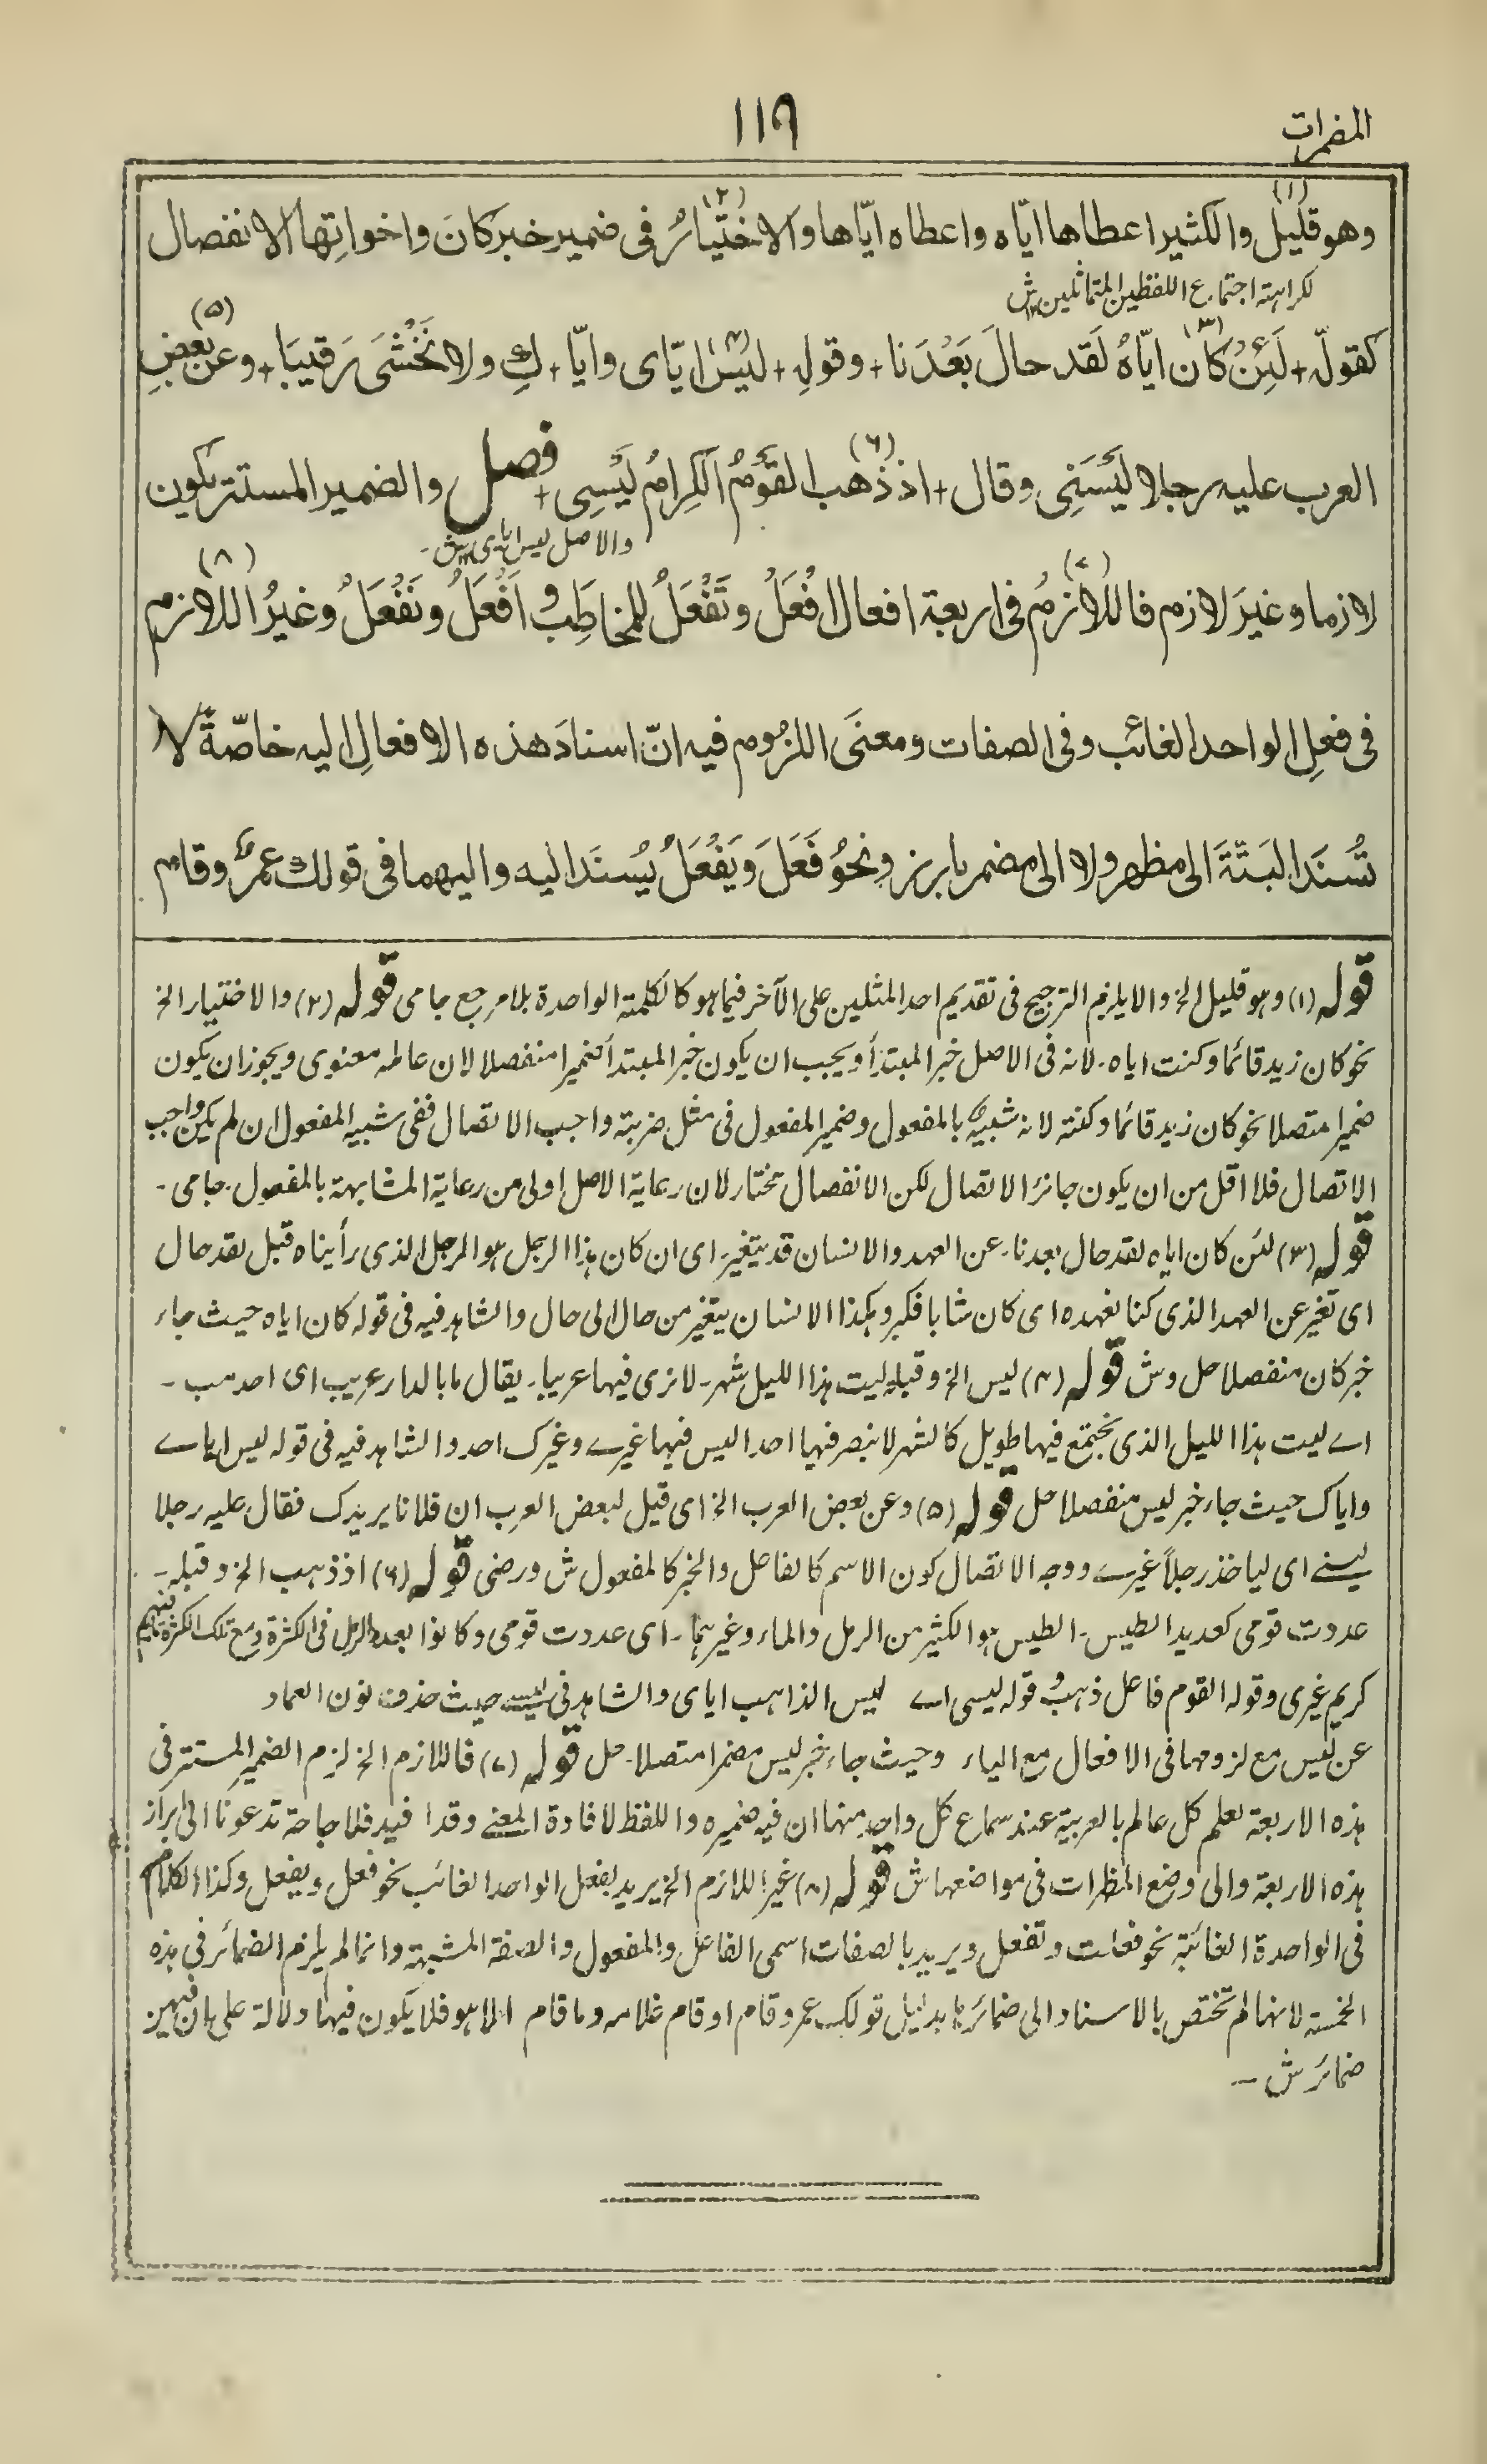 المضمرات
١١٩
وهو قليل(١) والكثير اعطاها ايّاه واعطاه ايّاها والاختيارُ(٢) فى ضمير خبر كانَ واخواتِها الانفصال
لكراهته اجتماع اللفظين المتماثلين ش
كقولهٖ + لَئِنْ كَانَ(٣) ايّاهُ لقَد حالَ بَعْدَنا + وقولِهٖ + ليسَ(٤) ايّاى وايّا + كِ ولا نَخْشَى رَقيبَا + وعن بعضِ(٥)
العرب عليه رجلا ليَسَنِى وقال + اذ ذهب(٦) القومُ الكِرامُ ليَسِى + فصل والضمير المستتر يكون
والاصل ليس اياى ش
لازما وغيرَ لازم فاللازمُ(٧) فى اربعة افعال اِفْعَلْ وتَفْعَلُ للمخاطَبِ و اَفْعَلُ ونَفْعَلُ وغيرُ اللازم(٨)
فى فعلِ الواحد الغائب وفى الصفات ومعنَى اللزُوم فيه انّ اسنادَ هذه الافعالِ اليه خاصّةً لا
تُسنَد البَتّةَ الى مظهر ولا الى مضمر بارز ونحوُ فَعَلَ ويَفْعَلُ يُسنَد اليه واليهما فى قولك عمرٌو قام
قوله (١) وهو قليل الخ والا يلزم الترجيح فى تقديم احد المثلين على الآخر فيما هو كالكلمة الواحدة بلا مرجح جامى قوله (٢) والاختيار الخ
نحو كان زيد قائما وكنت اياه . لانه فى الاصل خبر المبتدأ ويجب ان يكون خبر المبتدأ ضميرا منفصلا لان عامله معنوى ويجوز ان يكون
ضميرا متصلا نحو كان زيد قائما وكنته لانه شبيه بالمفعول وضمير المفعول فى مثل ضربته واجب الاتصال ففى شبيه المفعول ان لم يكن واجب
الاتصال فلا اقل من ان يكون جائز الاتصال لكن الانفصال تختار لان رعاية الاصل اولى من رعاية المشابهة بالمفعول . جامى -
قوله (٣) لئن كان اياه لقد حال بعدنا - عن العهد والانسان قد يتغير - اى ان كان هذا الرجل هو الرجل الذى رأيناه قبل لقد حال
اى تغير عن العهد الذى كنا نعهده اى كان شابا فكبر وهكذا الانسان يتغير من حال الى حال والشاهد فيه فى قوله كان اياه حيث جاء
خبر كان منفصلا حل وش قوله (٤) ليس الخ وقبله ليت هذا الليل شهر - لا نرى فيها عريبا - يقال ما بالدار عريب اى احد مب -
اے ليت هذا الليل الذى نجتمع فيها طويل كالشهر لا نبصر فيها احدا ليس فيها غيرے وغيرك احد والشاهد فيه فى قوله ليس اياے
واياك حيث جاء خبر ليس منفصلا حل قوله (٥) وعن بعض العرب الخ اى قيل لبعض العرب ان فلانا يريدك فقال عليه رجلا
ليسنے اى لياخذ رجلاً غيرے ووجه الاتصال كون الاسم كالفاعل والخبر كالمفعول ش ورضى قوله (٦) اذ ذهب الخ وقبله -
عددت قومى كعديد الطيس - الطيس هو الكثير من الرمل والماء وغيرهما - اى عددت قومى وكانوا بعدد الرمل فى الكثرة ومع تلك الكثرة ما فيهم
كريم غيرى وقوله القوم فاعل ذهب و قوله ليسى اے ليس الذاهب اياى والشاهد فى ليسے حيث حذفت نون العماد
عن ليس مع لزومها فى الافعال مع الياء وحيث جاء خبر ليس مضمرا متصلا - حل قوله (٧) فاللازم الخ لزم الضمير المستتر فى
هذه الاربعة لعلم كل عالم بالعربية عند سماع كل واحد منها ان فيه ضميره واللفظ لافادة المعنے وقد افيد فلا حاجة تدعونا الى ابراز
هذه الاربعة والى وضع المظهرات فى مواضعها ش قوله (٨) غير اللازم الخ يريد بفعل الواحد الغائب نحو فعل ويفعل وكذا الكلام
فى الواحدة الغائبة نحو فعلت وتفعل ويريد بالصفات اسمى الفاعل والمفعول والصفة المشبهة وانما لم يلزم الضمائر فى هذه
الخمسة لانها لم تختص بالاسناد الى ضمائرها بدليل قولك عمرو قام او قام غلامه وما قام الا هو فلا يكون فيها دلالة على ان فيهن
ضمائر ش -